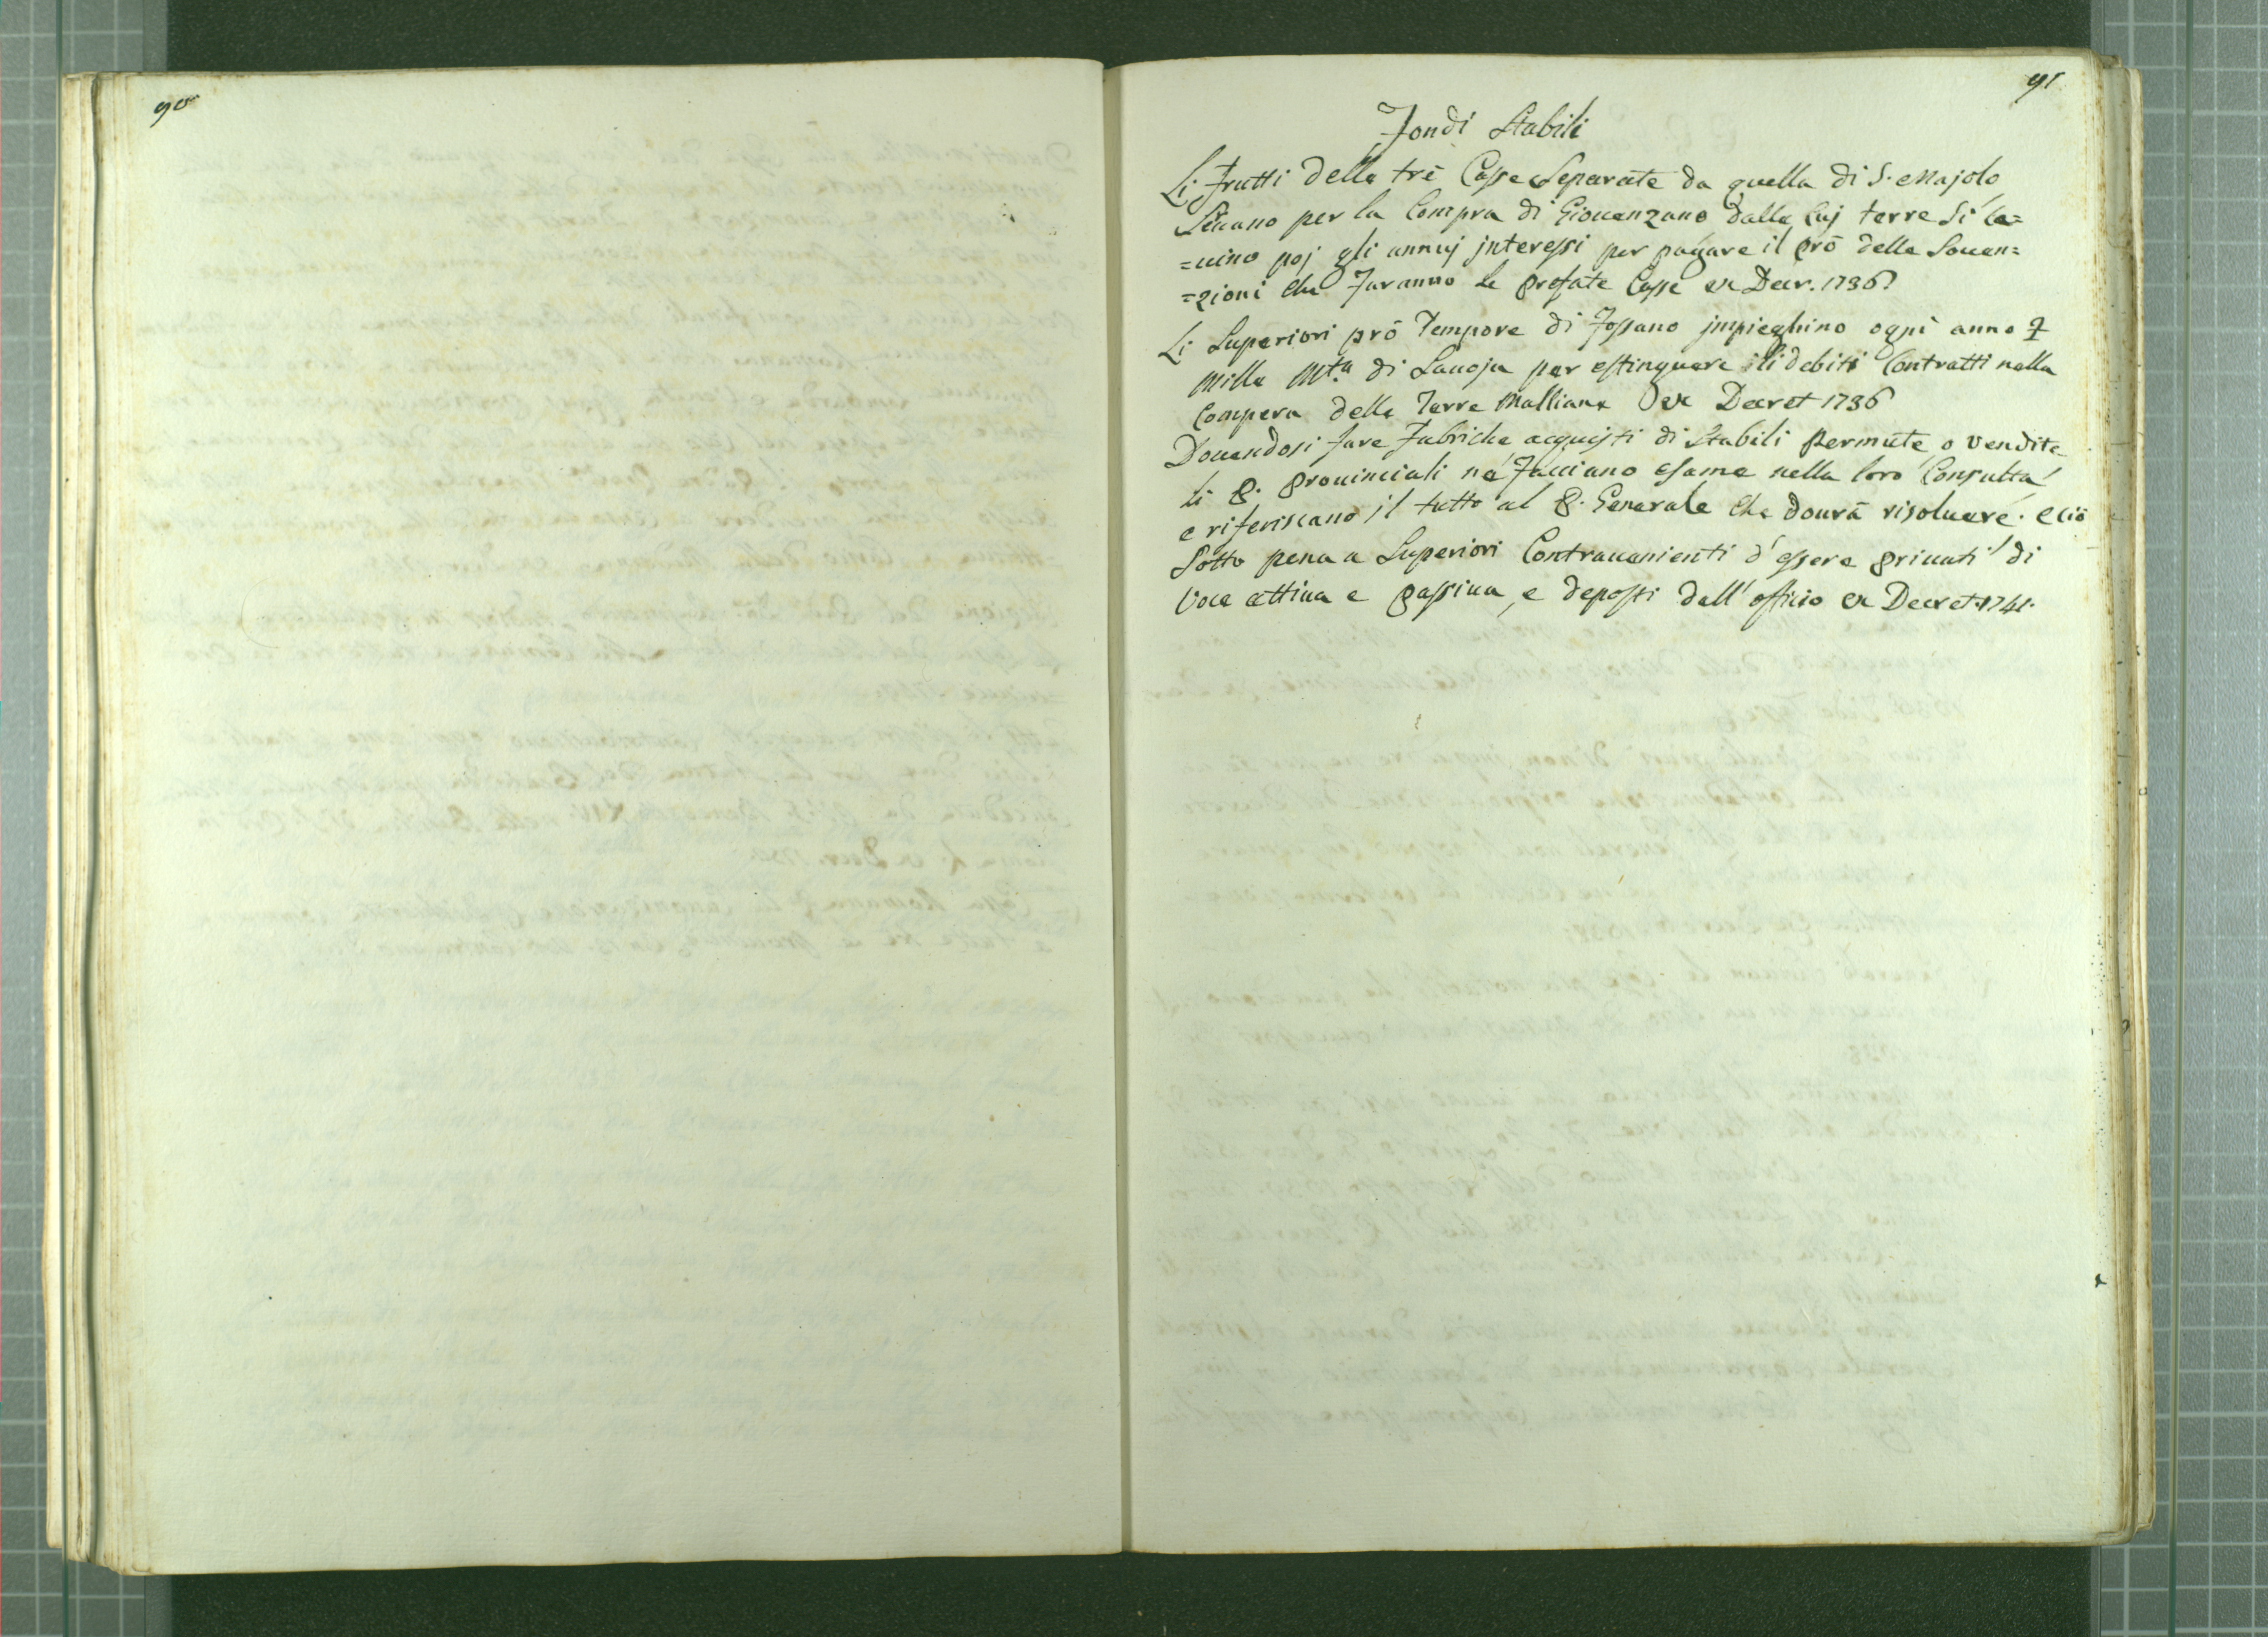 90
91
Fondi Stabili
Li Frutti delle trè Casse Separate da quella di S. Majolo
Servano per la Compra di Giovenzano dalle cuj terre Si le=
=vino poj gli annuj jnteressi per pagare il prò delle Soven=
=zioni che Faranno le prefate Casse ex Decr. 1736
Li Superiori prò Tempore di Fossano jmpieghino ogni anno
mille di Savoja per estinguere li debiti Contratti nella
Compera delle Terre Malliane ex Decret 1736
Dovendosi fare Fabriche acquisti di Stabili permute o vendite
li P. Provinciali ne Facciano esame nella loro Consulta
e riferiscano il tutto al P. Generale che dovrà risolvere. e ciò
Sotto pena a Superiori Contravenienti d'essere privati di
Voce attiva e passiva, e deposti dall'officio ex Decret. 1741.